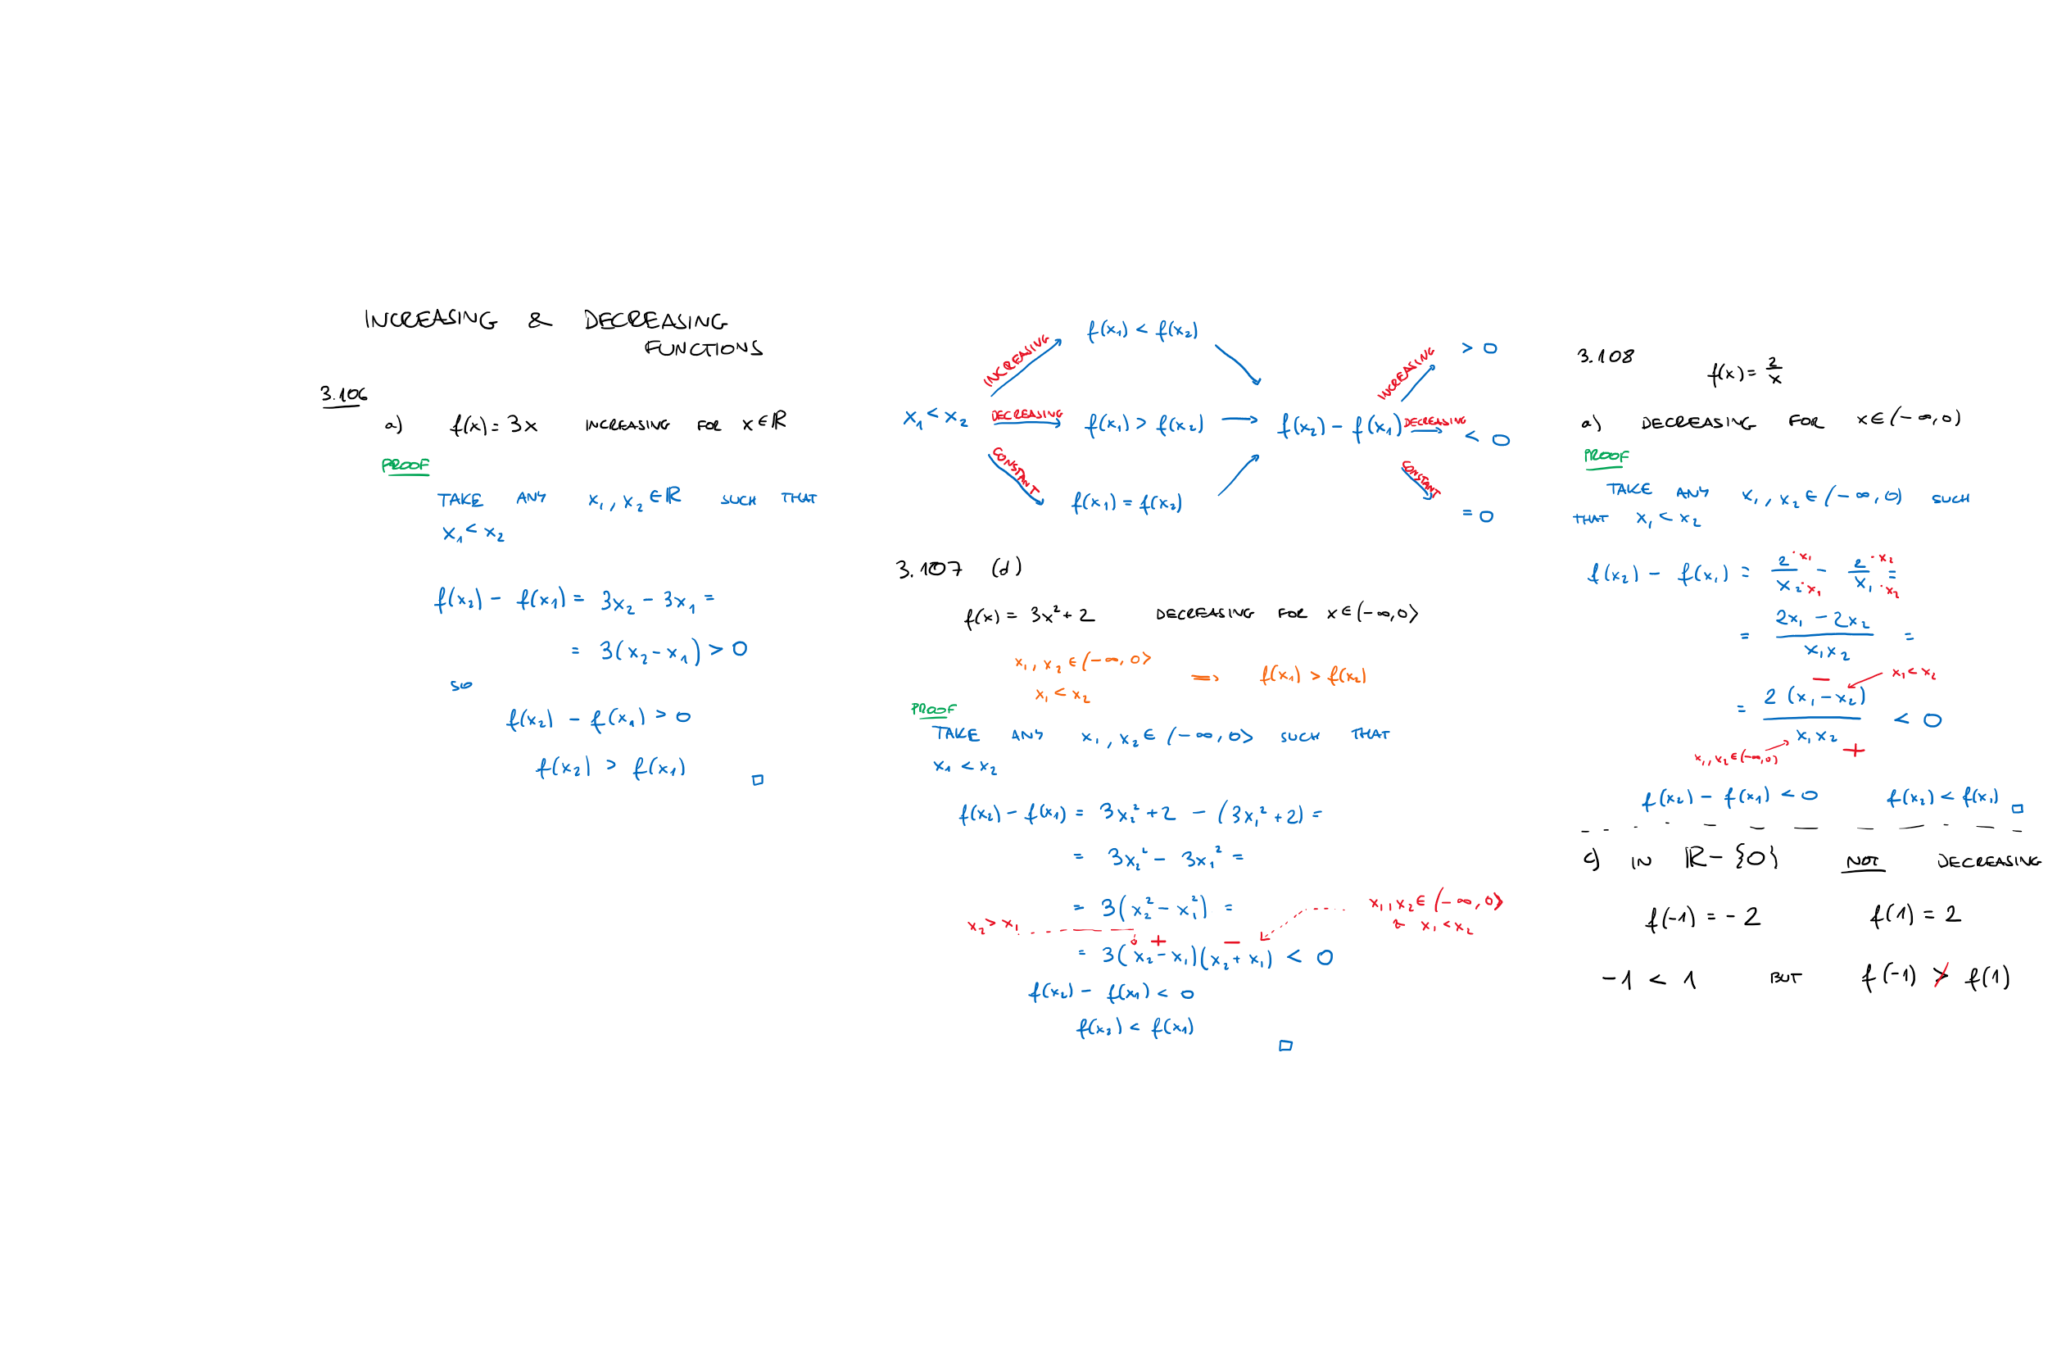 INCREASING & DECREASING
FUNCTIONS
3.106
a) f(x) = 3x INCREASING FOR x ∈ ℝ
PROOF
TAKE ANY x₁, x₂ ∈ ℝ SUCH THAT
x₁ < x₂
f(x₂) - f(x₁) = 3x₂ - 3x₁ =
= 3(x₂ - x₁) > 0
SO
f(x₂) - f(x₁) > 0
f(x₂) > f(x₁) □
x₁ < x₂
INCREASING f(x₁) < f(x₂)
DECREASING f(x₁) > f(x₂)
CONSTANT f(x₁) = f(x₂)
f(x₂) - f(x₁)
INCREASING > 0
DECREASING < 0
CONSTANT = 0
3.107 (d)
f(x) = 3x² + 2 DECREASING FOR x ∈ (-∞, 0⟩
x₁, x₂ ∈ (-∞, 0⟩
x₁ < x₂ ⇒ f(x₁) > f(x₂)
PROOF
TAKE ANY x₁, x₂ ∈ (-∞, 0⟩ SUCH THAT
x₁ < x₂
f(x₂) - f(x₁) = 3x₂² + 2 - (3x₁² + 2) =
= 3x₂² - 3x₁² =
= 3(x₂² - x₁²) =
x₂ > x₁ + - x₁, x₂ ∈ (-∞, 0⟩
& x₁ < x₂
= 3(x₂ - x₁)(x₂ + x₁) < 0
f(x₂) - f(x₁) < 0
f(x₂) < f(x₁)
□
3.108 f(x) = 2/x
a) DECREASING FOR x ∈ (-∞, 0)
PROOF
TAKE ANY x₁, x₂ ∈ (-∞, 0) SUCH
THAT x₁ < x₂
f(x₂) - f(x₁) = 2·x₁/x₂·x₁ - 2·x₂/x₁·x₂ =
= 2x₁ - 2x₂/x₁x₂ =
- x₁ < x₂
= 2(x₁ - x₂)/x₁x₂ < 0
x₁, x₂ ∈ (-∞, 0) +
f(x₂) - f(x₁) < 0 f(x₂) < f(x₁) □
c) IN ℝ - {0} NOT DECREASING
f(-1) = -2 f(1) = 2
-1 < 1 BUT f(-1) ≯ f(1)